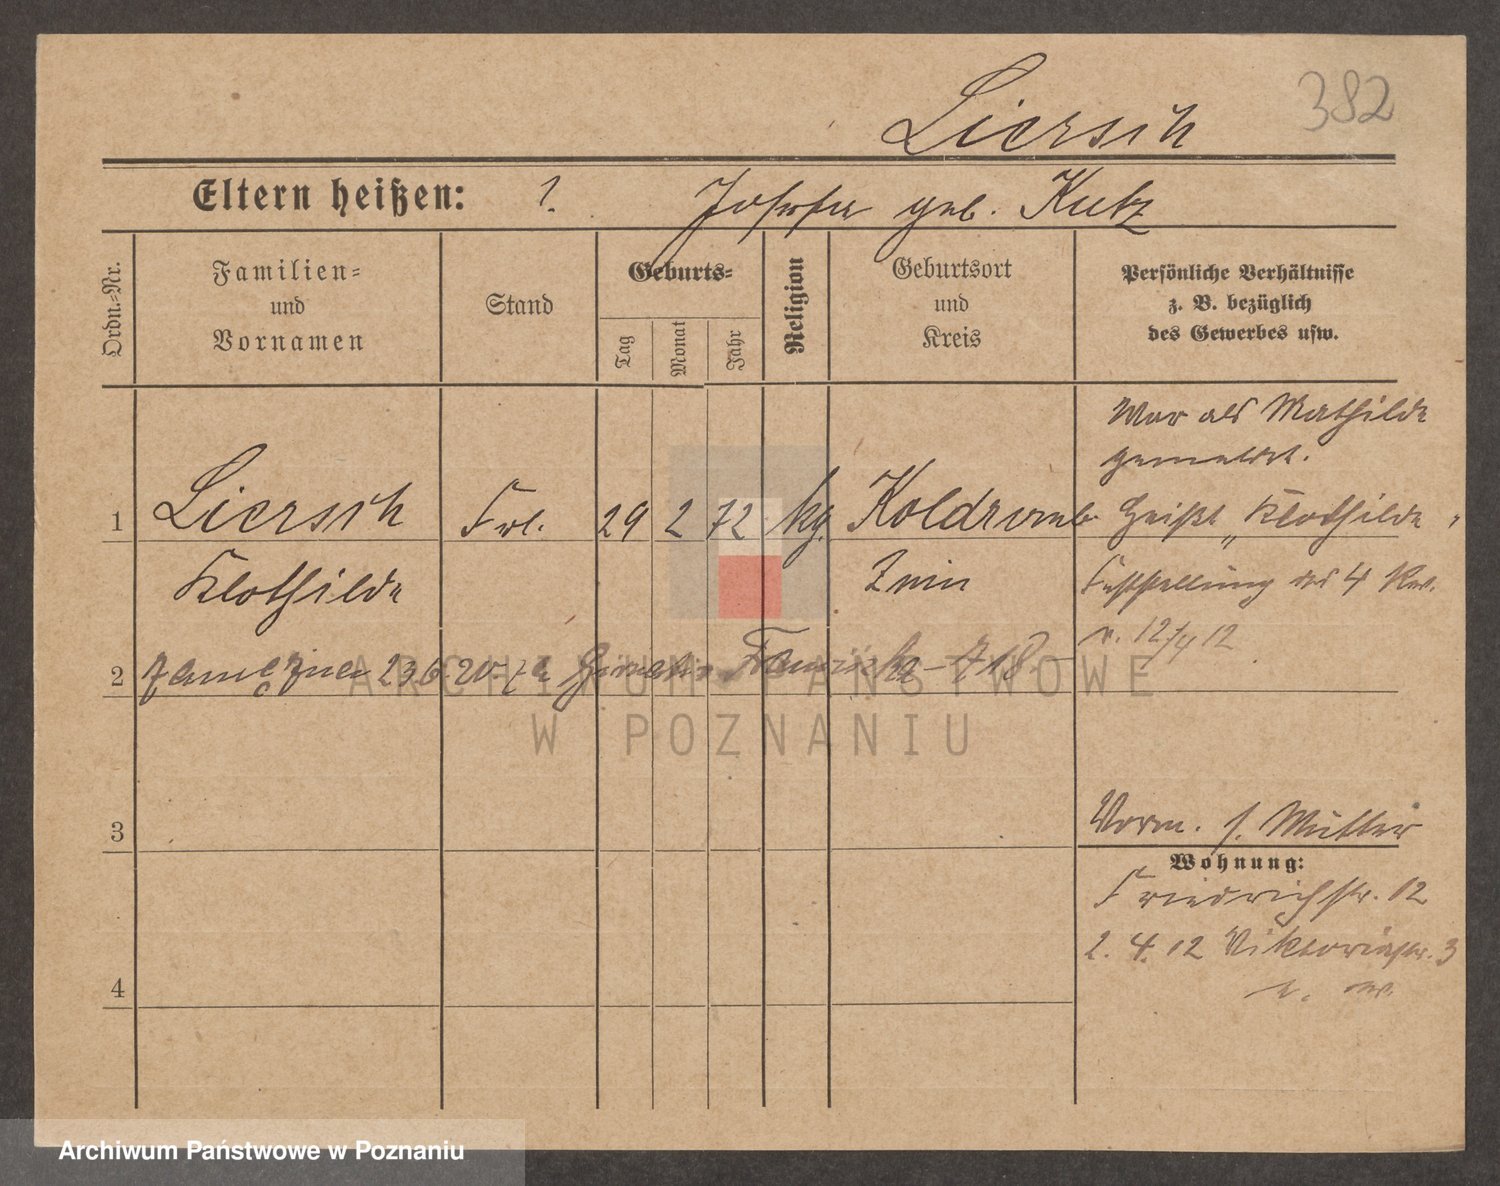 382
Liersch
Eltern heißen: 1. Josefa geb. Kutz
Ordn.-Nr.
Familien-
und
Vornamen
Stand
Geburts-
Tag
Monat
Jahr
Religion
Geburtsort
und
Kreis
Persönliche Verhältnisse
z. B. bezüglich
des Gewerbes usw.
War als Mathilde
gemeldet.
1 Liersch Frl. 29 2 72 Koldromb Heißt „Klothilde"
Klothilde Znin Feststellung des 4 Rev.
v. 12/4 12
2 zamężna 23.6.20
3
Vorm. s. Mutter
Wohnung:
Friedrichstr. 12
2. 4. 12 Viktoriastr. 3
4
ARCHIWUM PAŃSTWOWE
W POZNANIU
Archiwum Państwowe w Poznaniu